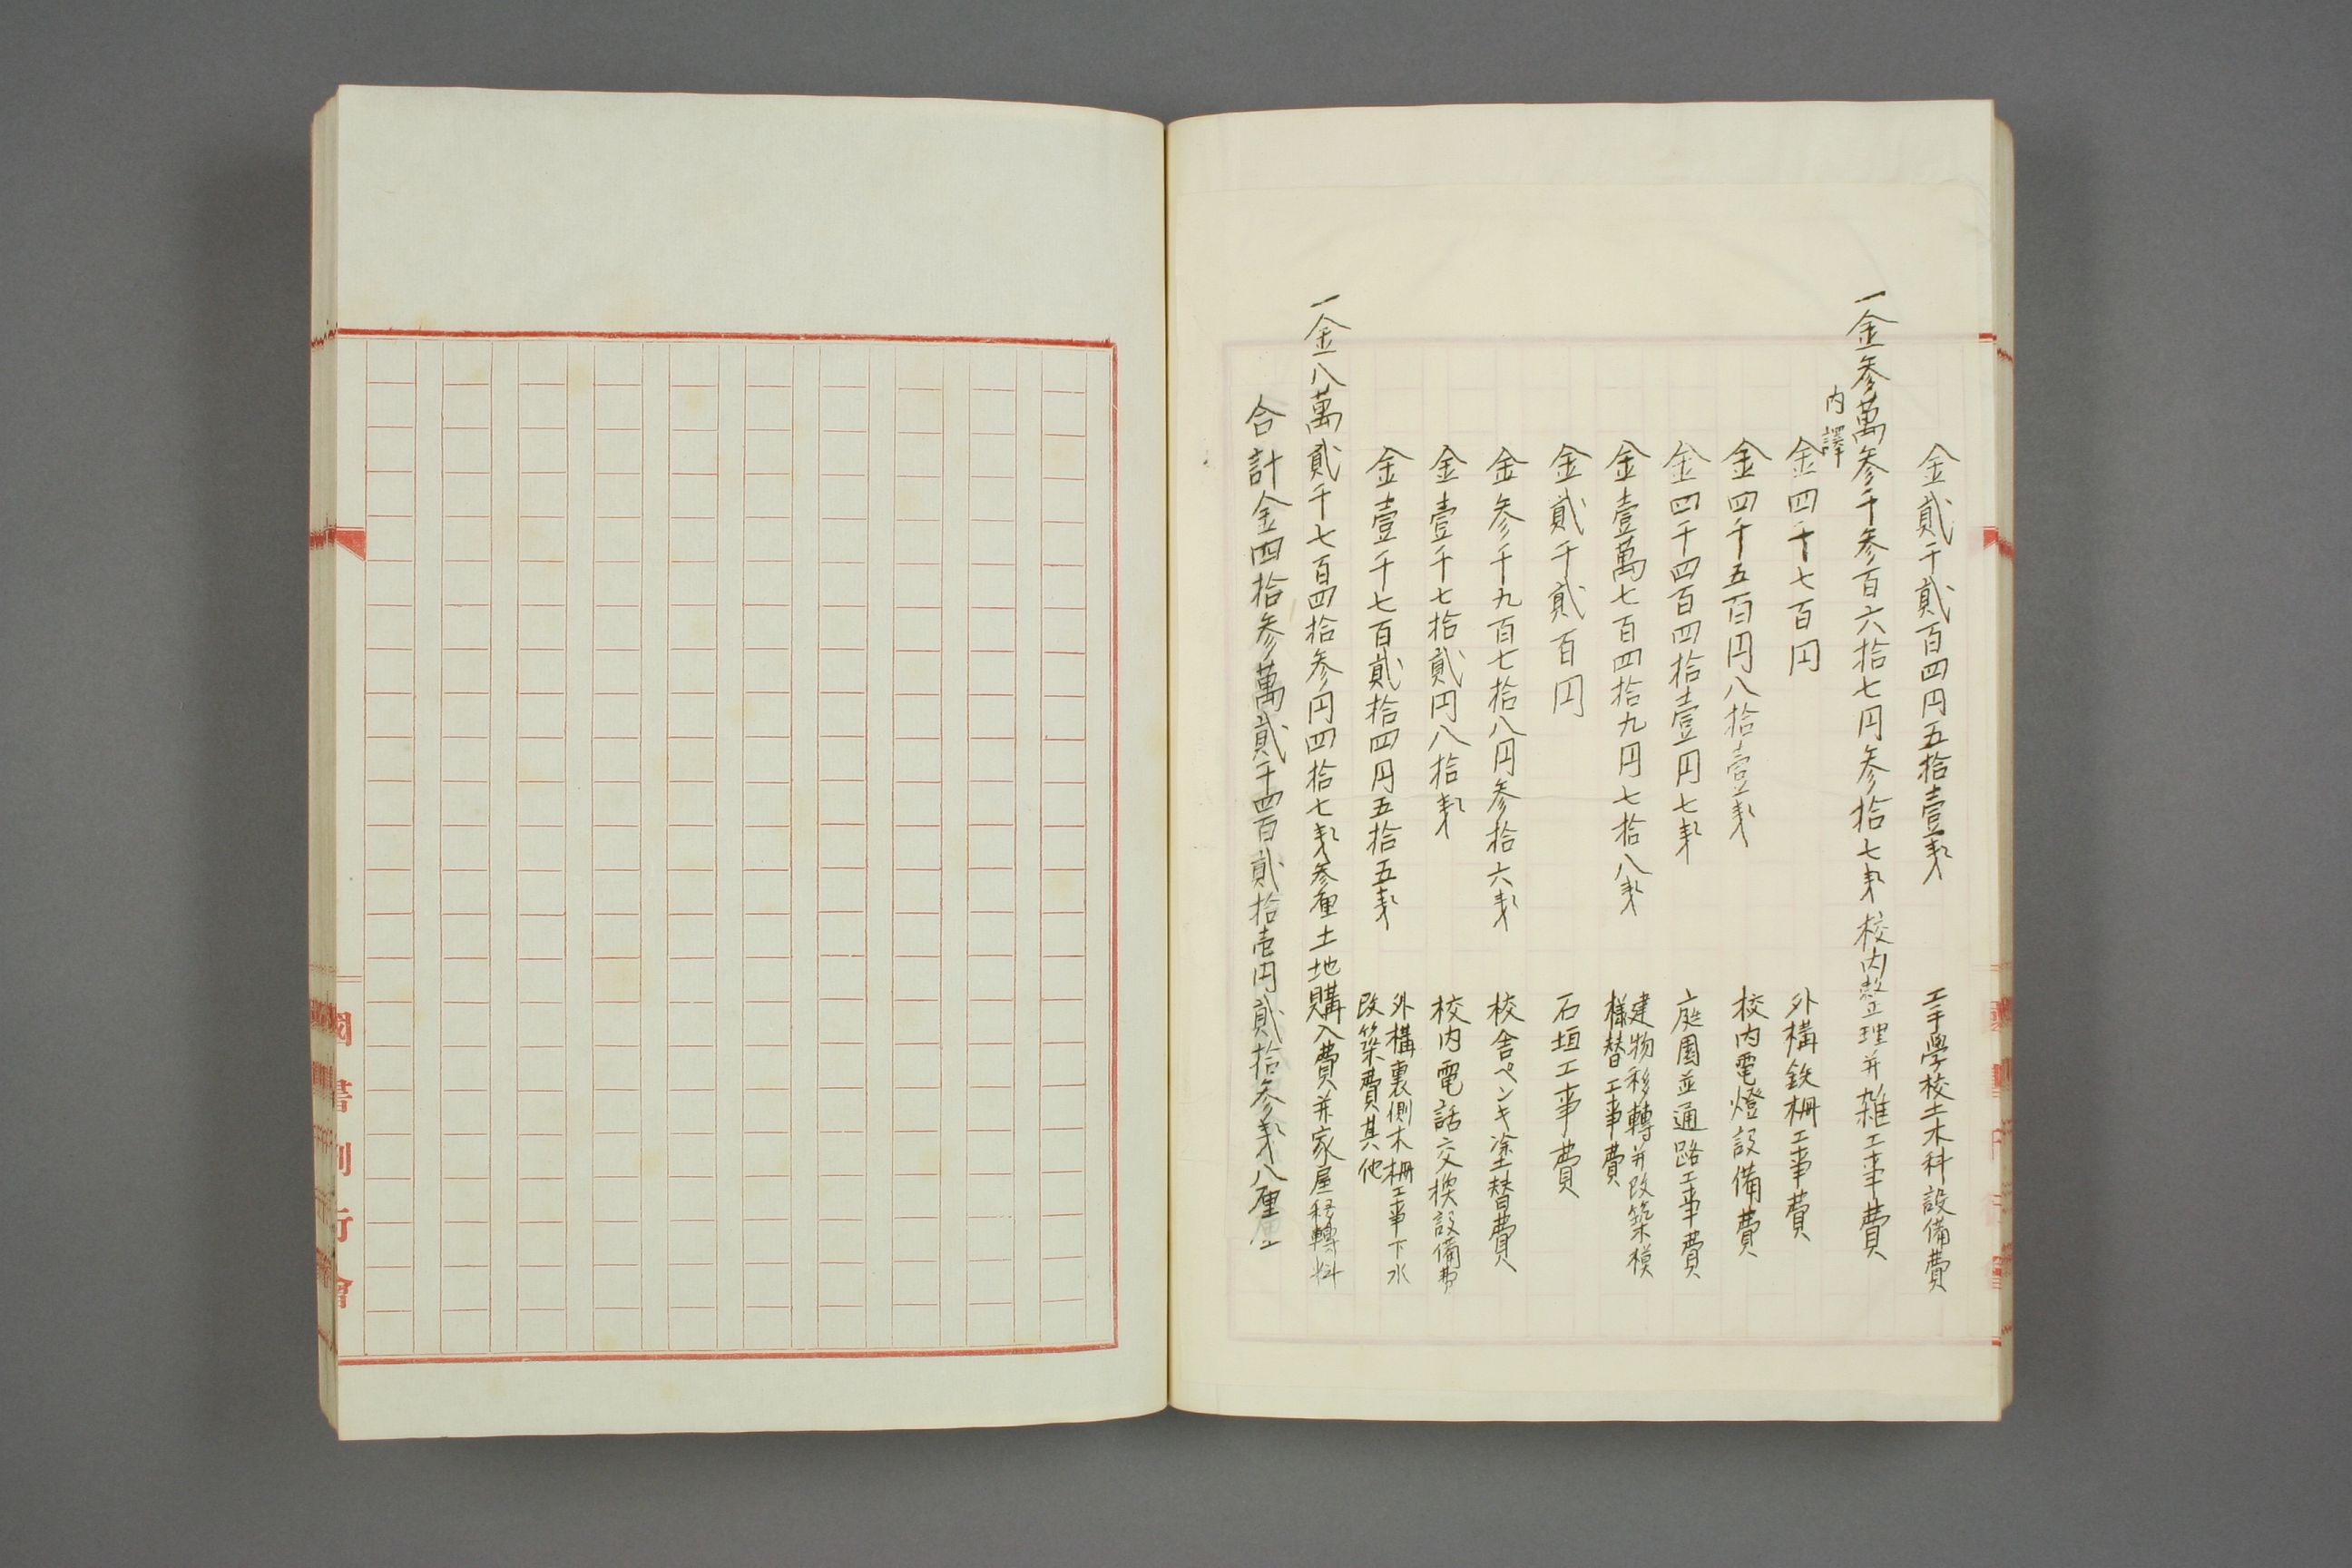 金貳千貳百四円五拾壹銭 工手學校土木科設備費
一金参萬参千参百六拾七円参拾七銭 校内整理并雑工事費
内譯
金四千七百円 外構鉄柵工事費
金四千五百円八拾壹銭 校内電燈設備費
金四千四百四拾壹円七銭 庭園並通路工事費
金壹萬七百四拾九円七拾八銭 建物移轉并改築模
様替工事費
金貳千貳百円 石垣工事費
金参千九百七拾八円参拾六銭 校舎ペンキ塗替費
金壹千七拾貳円八拾銭 校内電話交換設備費
金壹千七百貳拾四円五拾五銭 外構裏側木柵工事下水
改築費其他
一金八萬貳千七百四拾参円四拾七銭参厘土地購入費并家屋移轉料
合計金四拾参萬貳千四百貳拾壱円貳拾参銭八厘
國書刊行會